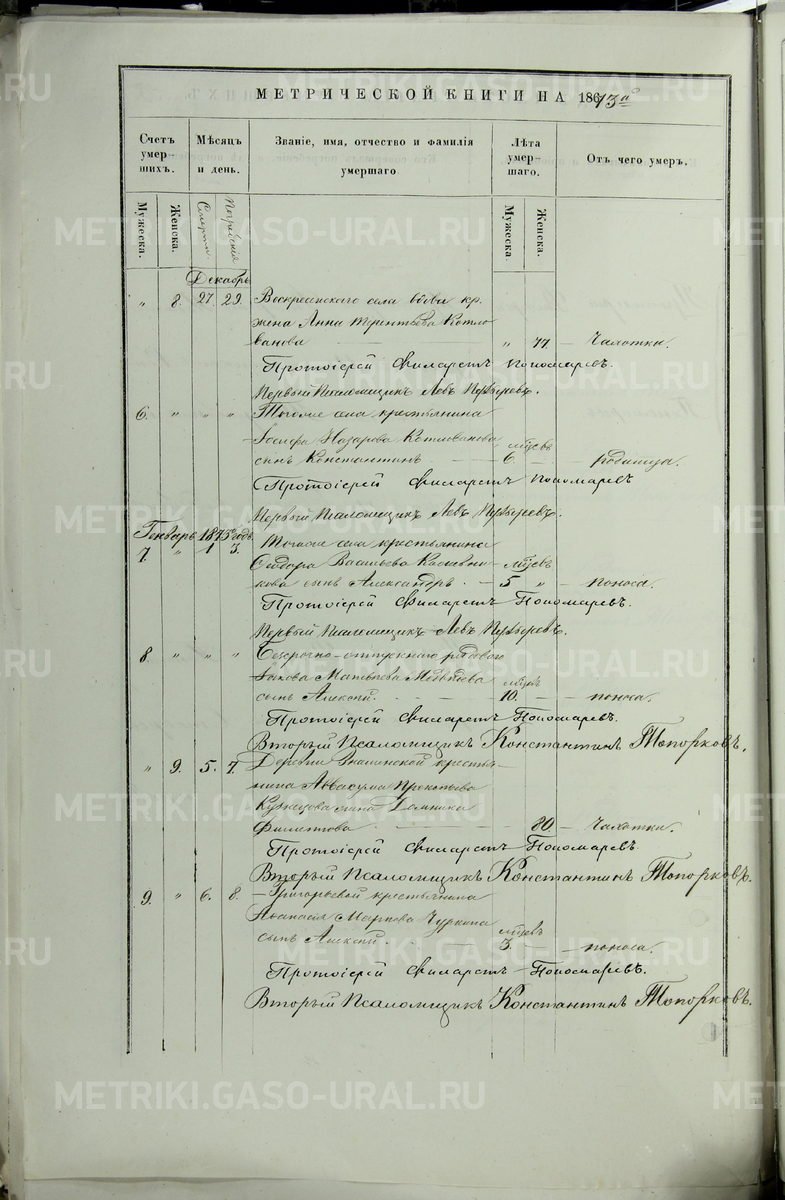 МЕТРИЧЕСКОЙ КНИГИ НА 1873й
Счетъ умер-шихъ. Мѣсяцъ и день. Званіе, имя, отчество и фамилія умершаго Лѣта умер-шаго. Отъ чего умеръ.
Мужеска. Женска. Смерти. Погребенія Мужеска. Женска.
Декабрь
" 8. 27. 29. Воскресенскаго села вдова кр.
жена Анна Терентьева Котло
ванова " 77 Чахотки.
Протоіерей Филаретъ Пономаревъ.
Первый Псаломщикъ Левъ
6. " " " Тогоже села крестьянина
Іосифа Назарова Котлованова мѣсяцъ
сынъ Константинъ 6. — родимца.
Протоіерей Филаретъ Пономаревъ
Первый Псаломщикъ Левъ
Генварь 1873 годъ
7 " 1 3. Тогоже села крестьянина
Ѳеодора Васильева мѣсяцъ
сынъ Александръ. 5 " поноса.
Протоіерей Филаретъ Пономаревъ.
Первый Псаломщикъ Левъ
8. " " " Безсрочно-отпускнаго рядоваго
Матвѣева Медвѣдева мѣсяцъ
сынъ Алексѣй. 10. — поноса.
Протоіерей Филаретъ Пономаревъ.
Вторый Псаломщикъ Константинъ Топорковъ.
" 9. 5. 7. Деревни крестья-
нина Аввакума Прокопьева
Кузнецова жена Домника
Филиппова. 80 — Чахотки.
Протоіерей Филаретъ Пономаревъ
Вторый Псаломщикъ Константинъ Топорковъ.
9. " 6. 8. — Григорьевой крестьянина
Аѳанасія Чуркина мѣсяцъ
сынъ Алексѣй. 3. — поноса.
Протоіерей Филаретъ Пономаревъ.
Вторый Псаломщикъ Константинъ Топорковъ.
METRIKI.GASO-URAL.RU